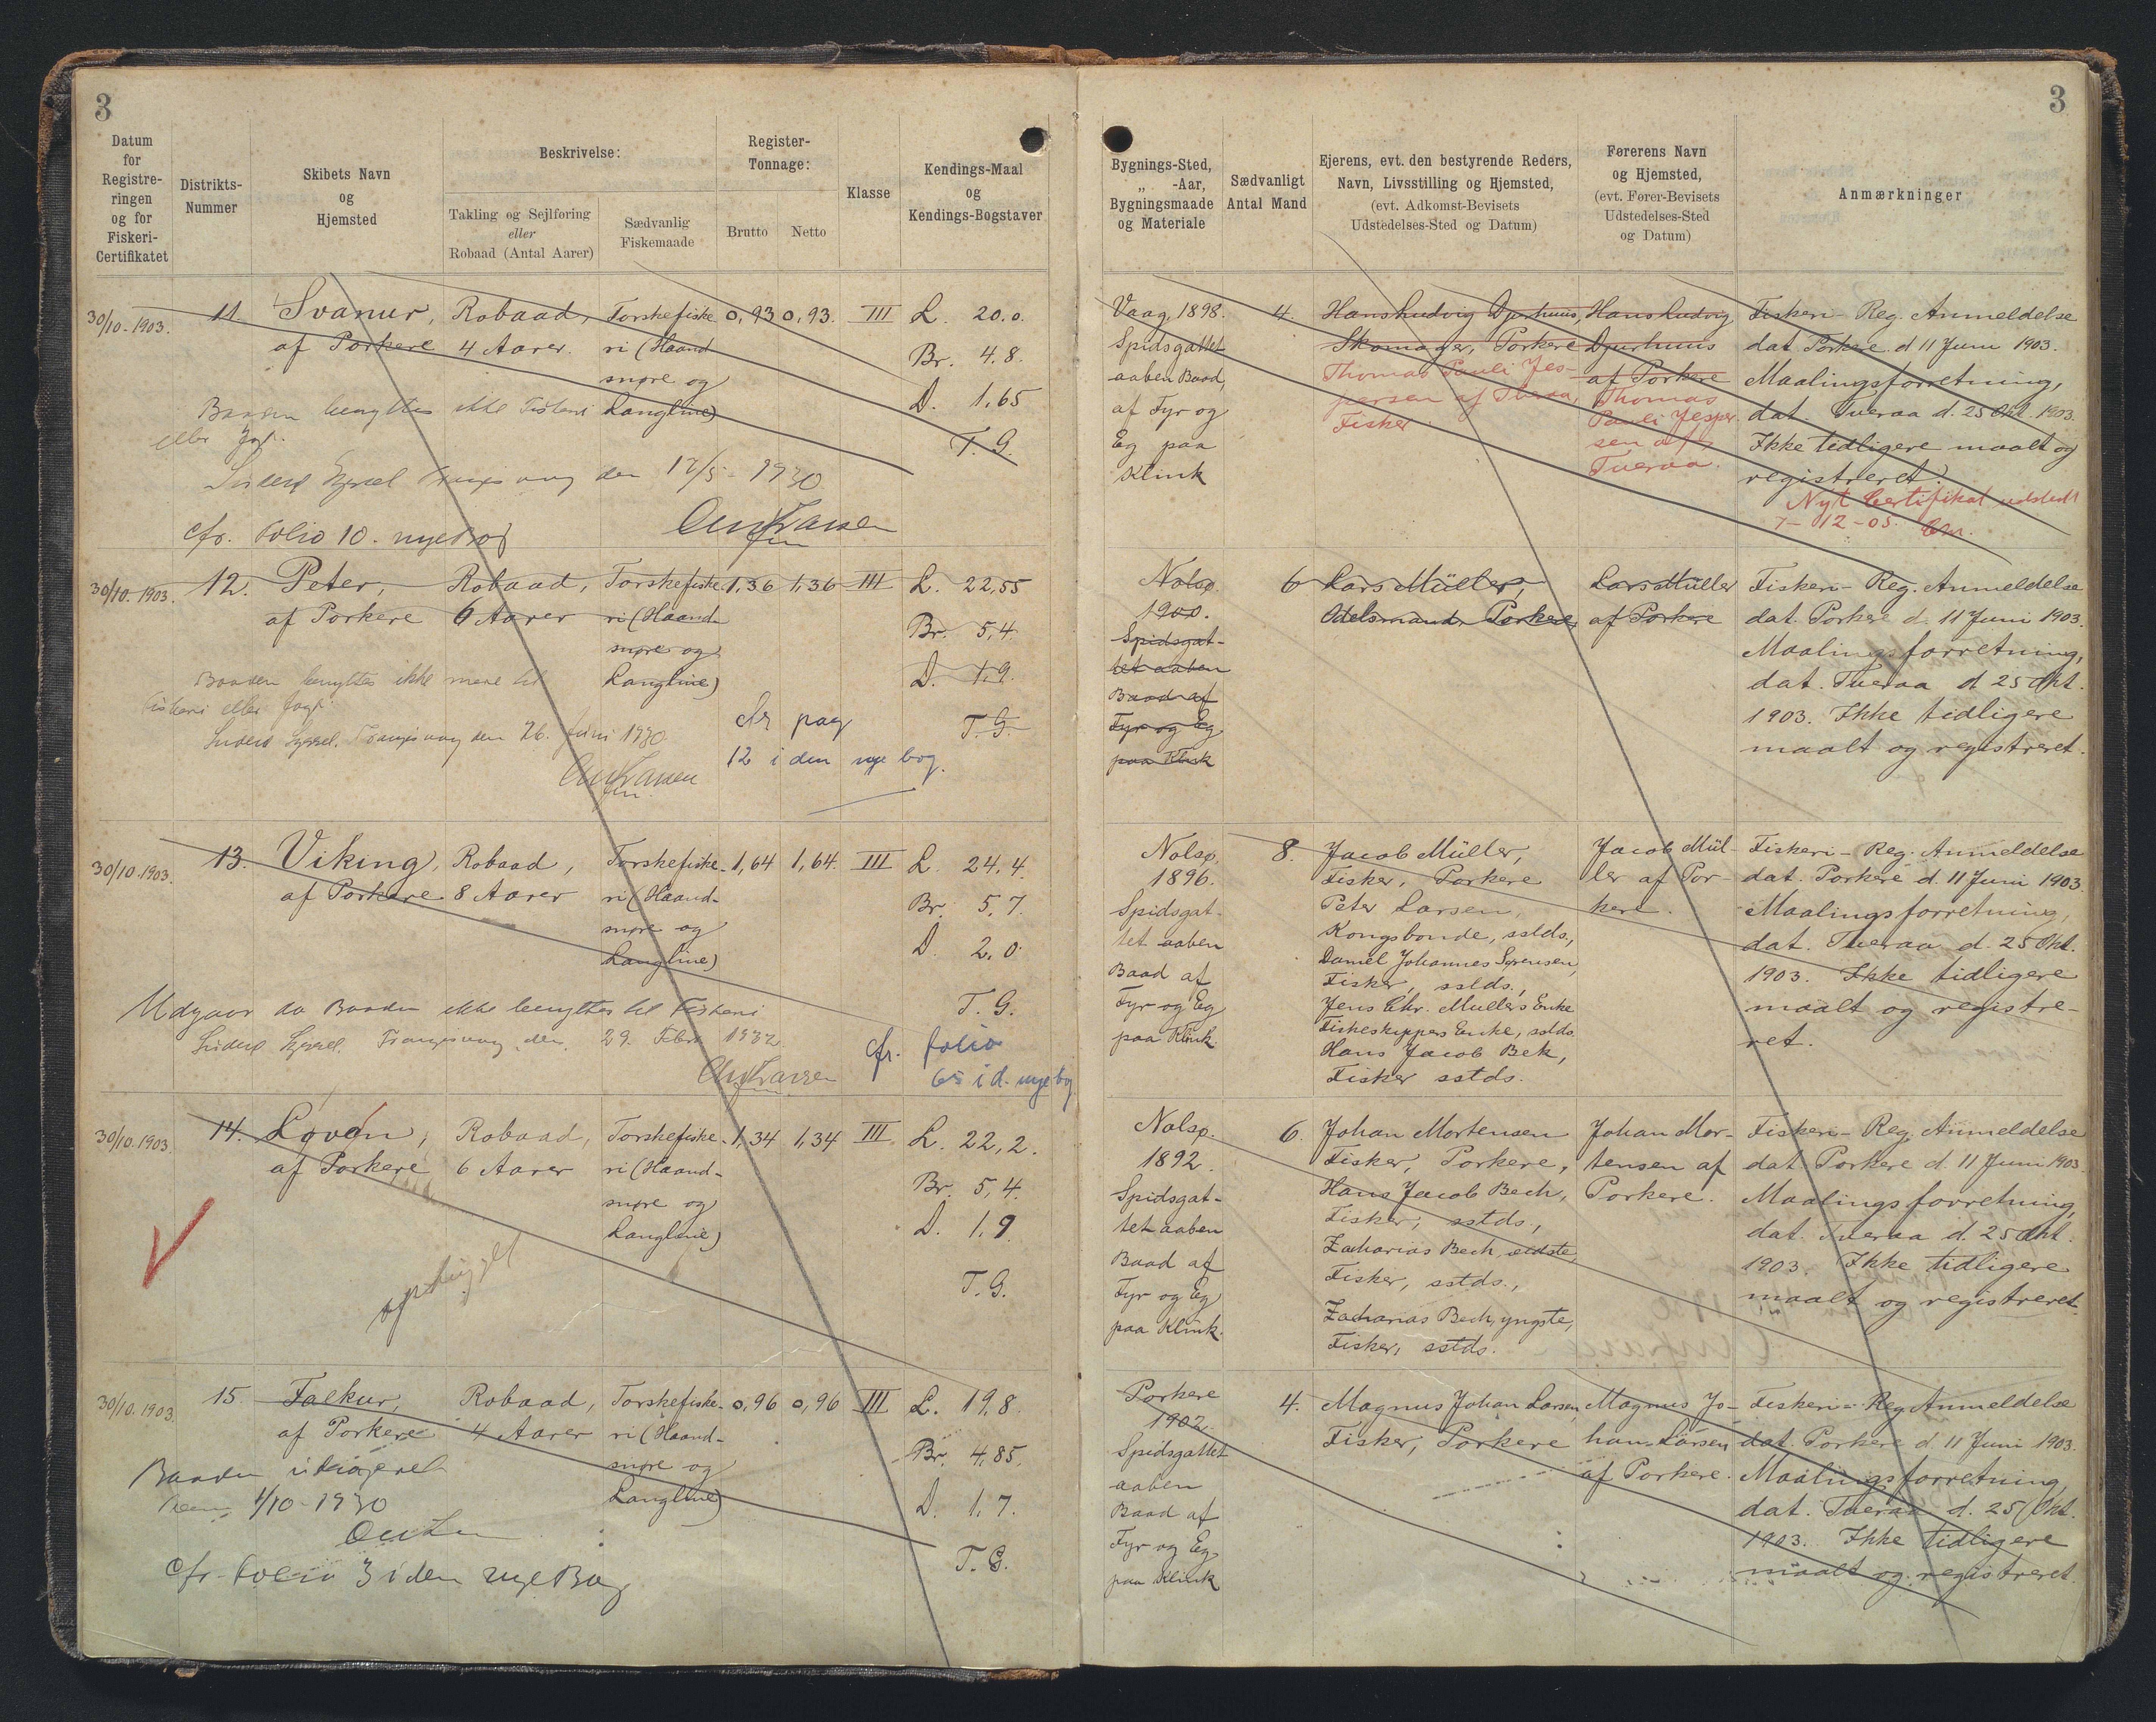 3
3
Datum
for
Registre-
ringen
og for
Fiskeri-
Certifikatet
Distrikts-
Nummer
Skibets Navn
og
Hjemsted
Beskrivelse:
Takling og Sejlføring
eller
Robaad (Antal Aarer)
Sædvanlig
Fiskemaade
Register-
Tonnage:
Brutto
Netto
Klasse
Kendings-Maal
og
Kendings-Bogstaver
Bygnings-Sted,
„ -Aar,
Bygningsmaade
og Materiale
Sædvanligt
Antal Mand
Ejerens, evt. den bestyrende Reders,
Navn, Livsstilling og Hjemsted,
(evt. Adkomst-Bevisets
Udstedelses-Sted og Datum)
Førerens Navn
og Hjemsted,
(evt. Fører-Bevisets
Udstedelses-Sted
og Datum)
Anmærkninger
30/10-1903.
11.
Svanur,
af Porkere
Robaad,
4 Aarer.
Torskefiske
ri (Haand
snøre og
Langline)
0,93
0,93.
III
L. 20.0.
Br. 4.8.
D. 1,65
T. G.
Baaden benyttes ikke Fiskeri
eller Jagt.
den 17/5 - 1930
cfr. folio 10. nye Bog
Vaag, 1898.
Spidsgattet
aaben Baad,
af Fyr og
Eg paa
Klink
4.
Hans Ludvig Djurhuus,
Skomager, Porkere
Thomas Pauli Jes-
persen af Tveraa,
Fisker.
Hans Ludvig
Djurhuus
af Porkere
Thomas
Pauli Jesper-
sen af
Tveraa.
Fiskeri-Reg. Anmeldelse
dat. Porkere d. 11 Juni 1903.
Maalingsforretning,
dat. Tveraa d. 25 Okt. 1903.
Ikke tidligere maalt og
registreret.
Nyt Certifikat udstedt
7-12-05.
30/10-1903.
12.
Peter,
af Porkere
Robaad,
6 Aarer
Torskefiske-
ri (Haand-
snøre og
Langline)
1,36
1,36
III
L. 22,55
Br. 5,4.
D. 1,9.
T. G.
Baaden benyttes ikke mere til
Fiskeri eller Jagt.
Suderø Syssel. Trangisvaag den 26. Juni 1930
cfr pag
12 i den nye bog.
Nolsø.
1900.
Spidsgat-
tet aaben
Baad af
Fyr og Eg
paa Klink
6
Lars Müller,
Odelsmand, Porkere,
Lars Müller
af Porkere
Fiskeri-Reg. Anmeldelse
dat. Porkere d. 11 Juni 1903.
Maalingsforretning,
dat. Tveraa d. 25 Okt.
1903. Ikke tidligere
maalt og registreret.
30/10 1903.
13.
Viking,
af Porkere.
Robaad,
8 Aarer
Torskefiske-
ri (Haand-
snøre og
Langline)
1,64
1,64.
III
L. 24,4.
Br. 5,7.
D. 2,0
T. G.
Udgaar da Baaden ikke benyttes til Fiskeri
Suderø Syssel. Trangisvaag, den. 29. Febr. 1932.
cfr. folio
65 i d. nye bog
Nolsø,
1896.
Spidsgat-
tet aaben
Baad af
Fyr og Eg
paa Klink.
8.
Jacob Müller,
Fisker, Porkere
Peter Larsen,
Kongsbonde, sstds.,
Daniel Johannes Sørensen,
Fisker, sstds.,
Jens Chr. Mullers Enke
Fiskeskippers Enke, sstds.
Hans Jacob Bek,
Fisker sstds.
Jacob Mül-
ler af Por-
kere.
Fiskeri-Reg. Anmeldelse
dat. Porkere d. 11 Juni 1903.
Maalingsforretning,
dat. Tveraa d. 25 Okt.
1903. Ikke tidligere
maalt og registre-
ret.
30/10.1903.
14.
Løven,
af Porkere
Robaad,
6 Aarer
Torskefiske-
ri (Haand-
snøre og
Langline)
1,34
1,34
III.
L. 22,2.
Br. 5,4.
D. 1,9.
T. G.
ophugget
Nolsø.
1892.
Spidsgat-
tet aaben
Baad af
Fyr og Eg
paa Klink.
6.
Johan Mortensen
Fisker, Porkere,
Hans Jacob Bech,
Fisker, sstds.,
Zacharias Bech, ældste,
Fisker, sstds.,
Zacharias Bech, yngste,
Fisker, sstds.
Johan Mor-
tensen af
Porkere.
Fiskeri-Reg. Anmeldelse
dat. Porkere d. 11 Juni 1903.
Maalingsforretning,
dat. Tveraa d. 25 Okt.
1903. Ikke tidligere
maalt og registreret.
30/10.1903.
15.
Falkur,
af Porkere
Robaad,
4 Aarer
Torskefiske-
ri (Haand-
snøre og
Langline)
0,96
0,96
III
L. 19,8.
Br. 4,85.
D. 1,7.
T. G.
Baaden
1/10-1930
cfr. folio 3 i den nye Bog
Porkere
1902.
Spidsgattet
aaben
Baad af
Fyr og Eg
paa Klink
4.
Magnus Johan Larsen,
Fisker, Porkere
Magnus Jo-
han Larsen
af Porkere.
Fiskeri-Reg. Anmeldelse
dat. Porkere d. 11 Juni 1903.
Maalingsforretning
dat. Tveraa d. 25/Okt.
1903. Ikke tidligere
maalt og registreret.